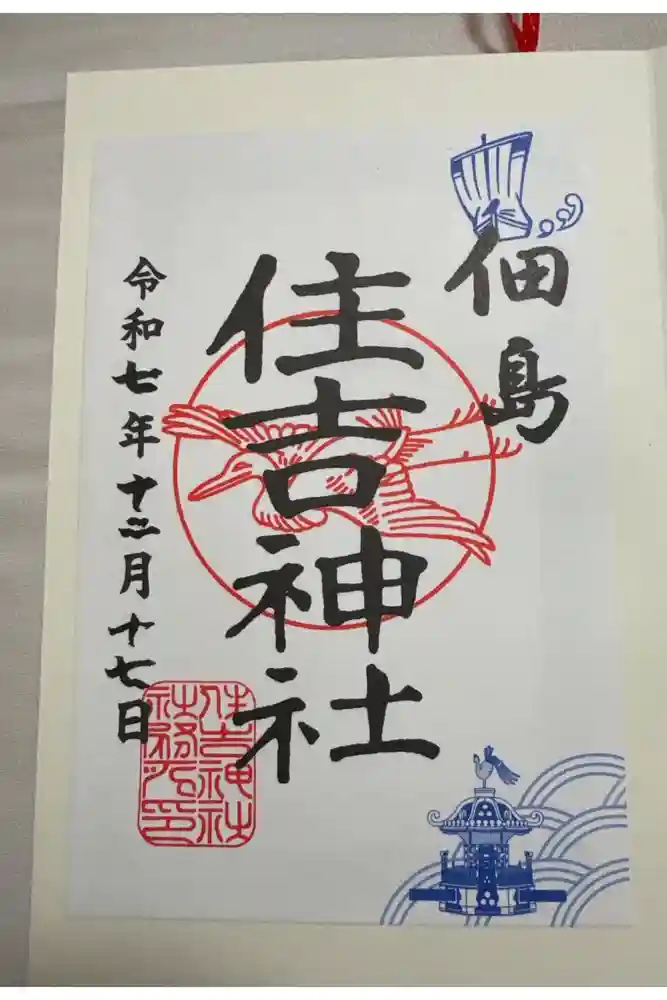 佃島
住吉神社
令和七年十二月十七日
住吉神社
社務所印